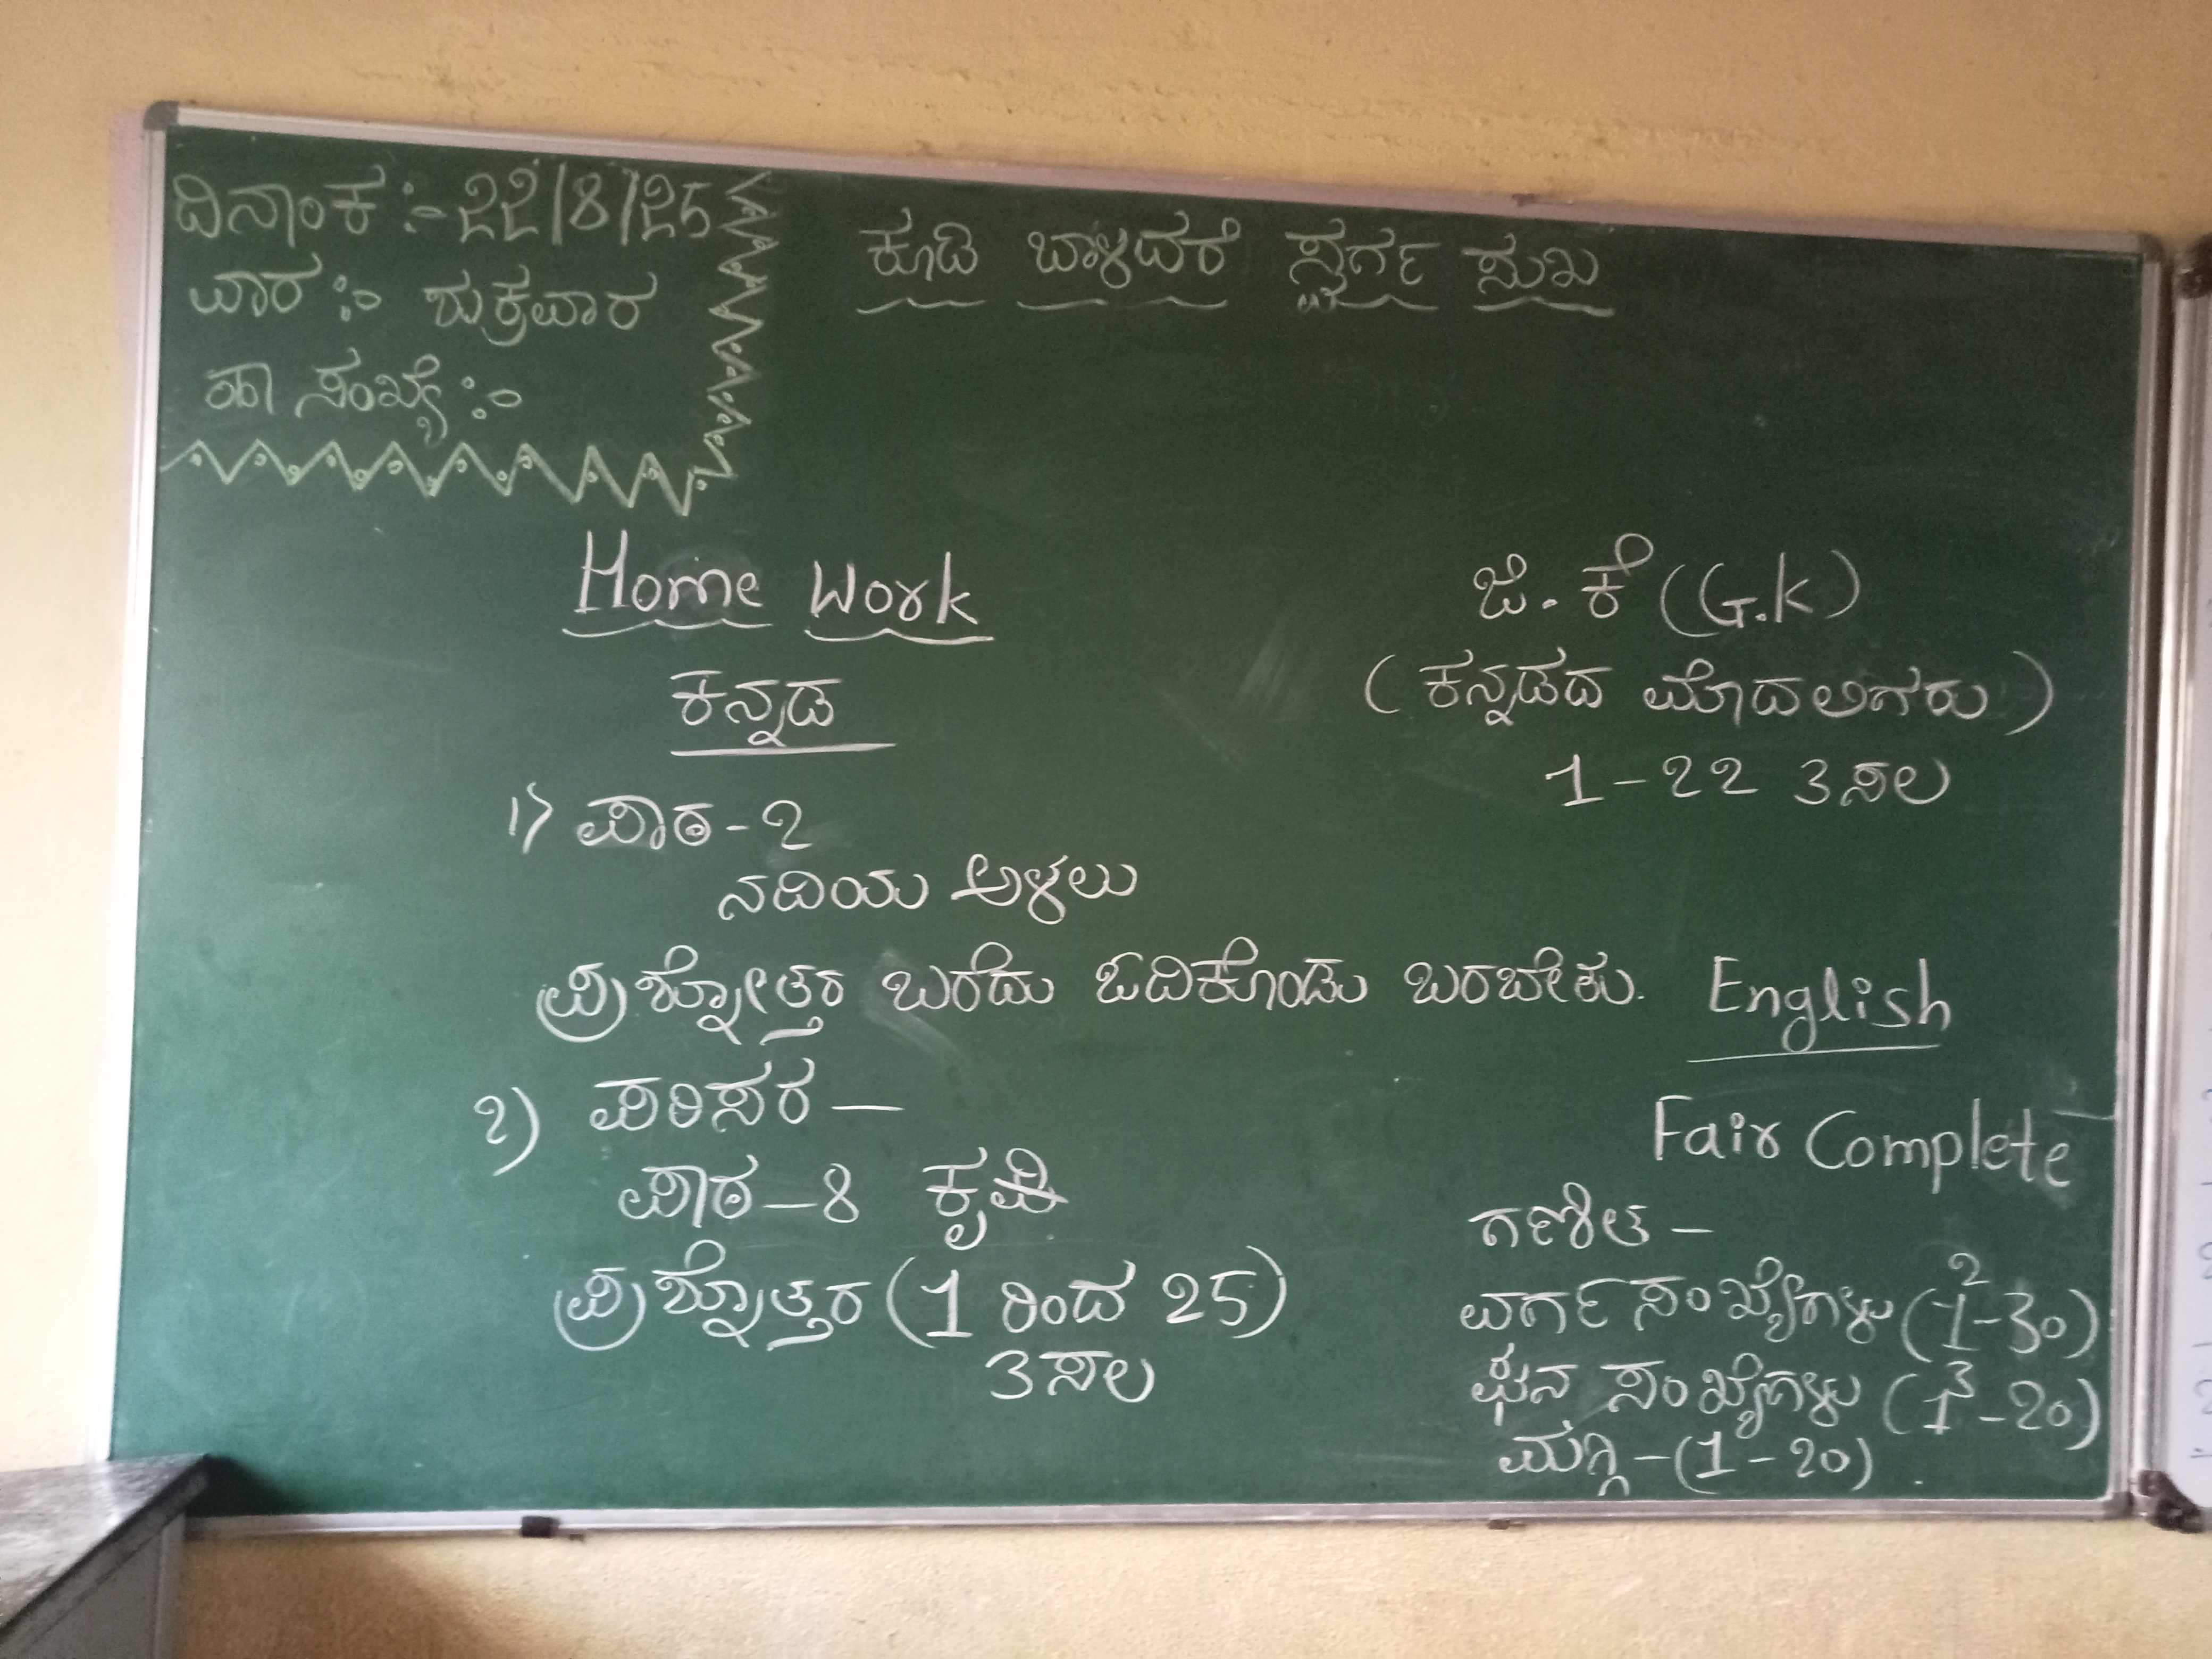 ದಿನಾಂಕ :- 22/8/25
ವಾರ :- ಶುಕ್ರವಾರ
ಹಾ ಸಂಖ್ಯೆ :-
ಕೂಡಿ ಬಾಳಿದರೆ ಸ್ವರ್ಗ ಸುಖ
Home Work
ಕನ್ನಡ
1) ಪಾಠ - 2
ನದಿಯ ಅಳಲು
ಪ್ರಶ್ನೋತ್ತರ ಬರೆದು ಓದಿಕೊಂಡು ಬರಬೇಕು.
2) ಪರಿಸರ —
ಪಾಠ - 8 ಕೃಷಿ
ಪ್ರಶ್ನೊತ್ತರ (1 ರಿಂದ 25)
3 ಸಲ
ಜಿ. ಕೆ (G.k)
(ಕನ್ನಡದ ಮೊದಲಿಗರು)
1 - 22 3 ಸಲ
English
Fair Complete
ಗಣಿತ -
ವರ್ಗ ಸಂಖ್ಯೆಗಳು (1² - 30)
ಘನ ಸಂಖ್ಯೆಗಳು (1³ - 20)
ಮಗ್ಗಿ - (1 - 20)